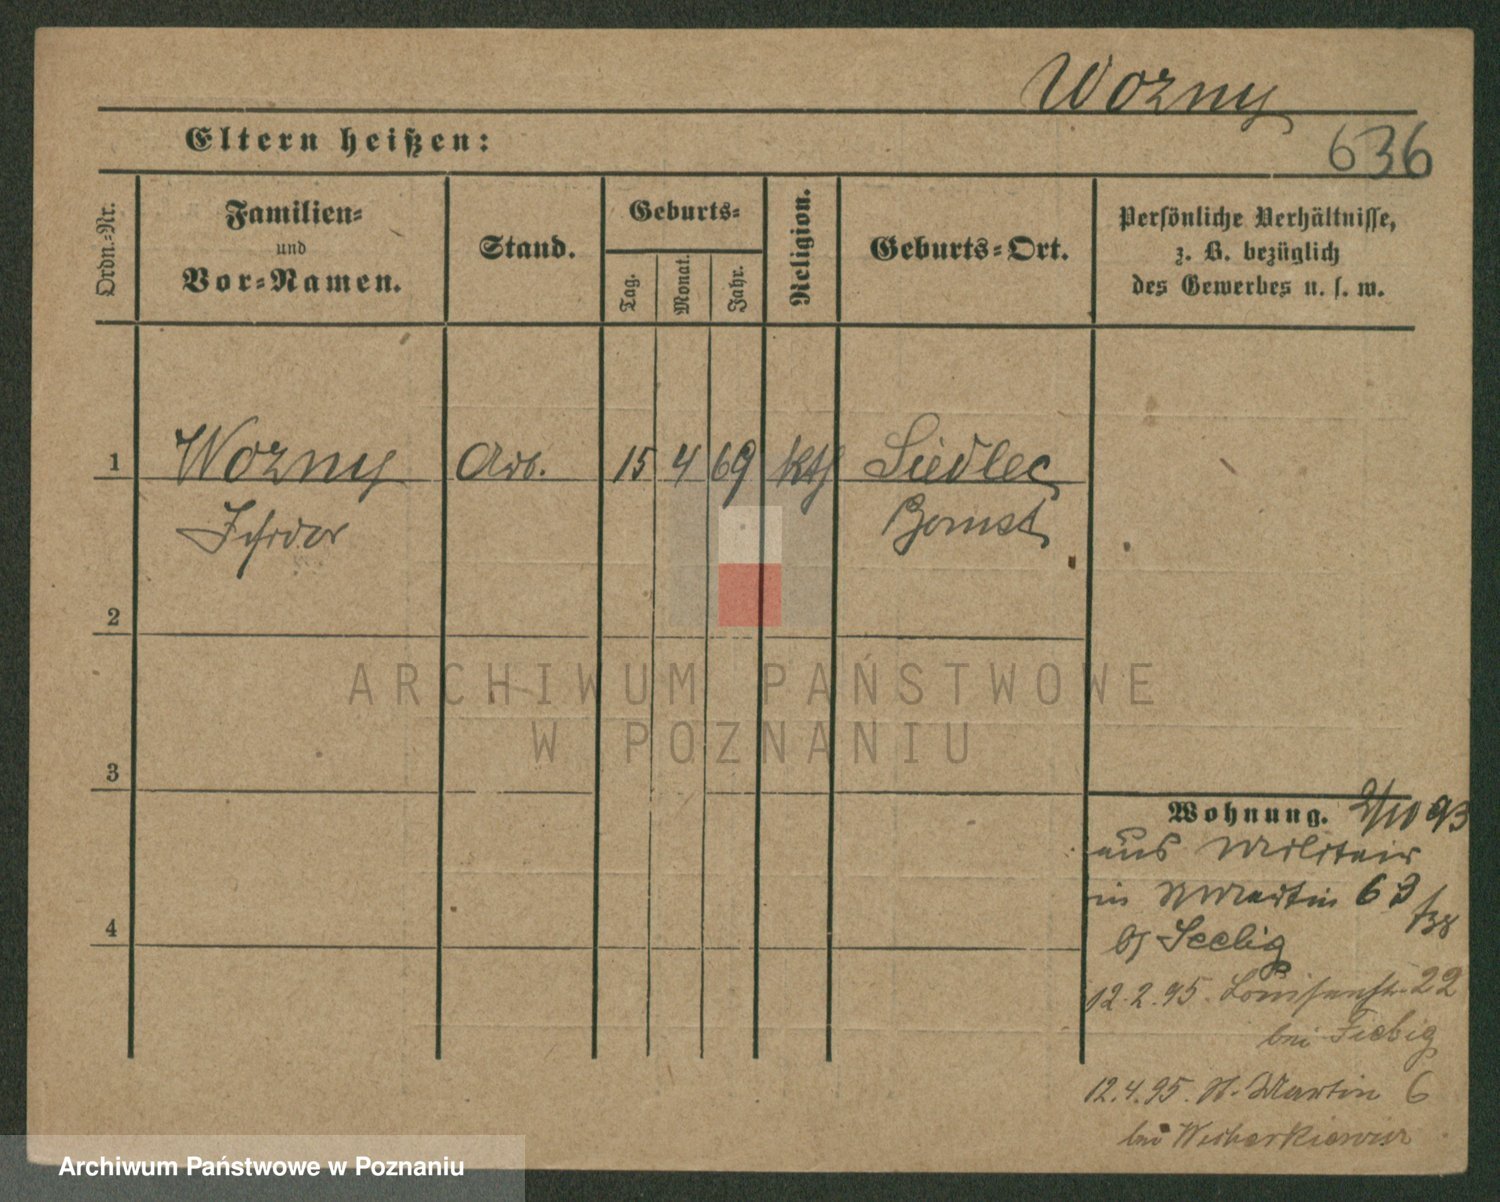 Wozny
636
Eltern heißen:
Ordn.-Nr.
Familien-
und
Vor-Namen.
Stand.
Geburts-
Tag.
Monat.
Jahr.
Religion.
Geburts-Ort.
Persönliche Verhältnisse,
z. B. bezüglich
des Gewerbes u. s. w.
1
Wozny
Arb.
15
4
69
kth
Siedlec
Isidor
Bomst
2
3
4
ARCHIWUM PAŃSTWOWE
W POZNANIU
Wohnung. 2/10 93
aus Militair
in Martin 63
b/ Seelig
12.2.95. Louisenstr. 22
bei Fiebig
12.4.95. St. Martin 6
bei
Archiwum Państwowe w Poznaniu